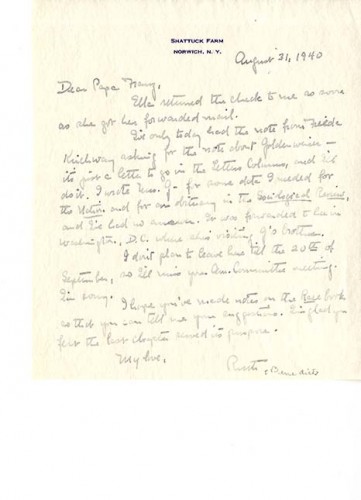 SHATTUCK FARM
NORWICH, N. Y.
August 31, 1940
Dear Papa Franz,
Ella returned the check to me as soon
as she got her forwarded mail.
I've only today had the note from Freda
Kirchwey asking for the note about Goldenweiser –
it's just a letter to go in the Letters Columns, and I'll
do it. I wrote Mrs. G– for some data I needed for
the Nation and for an obituary in the Sociological Review,
and I've had no answer. It was forwarded to her in
Washington, D.C. where she's visiting G's brother.
I don't plan to leave here till the 20th of
September, so I'll miss your Am. Committee meeting.
I'm sorry. I hope you've made notes on the Race book
so that you can tell me your suggestions. I'm glad you
felt the last chapter served its purpose.
My love,
Ruth
Benedict